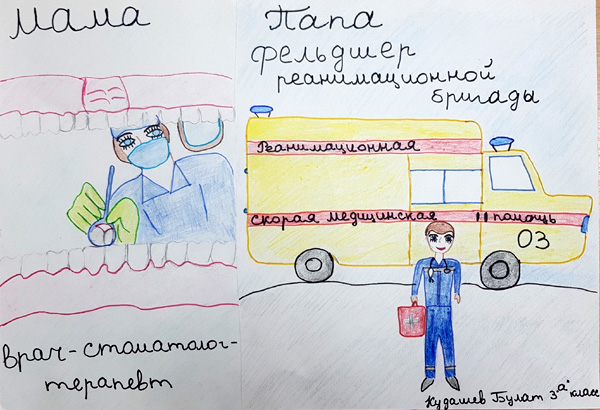 Мама
врач-стоматолог-
терапевт
Папа
фельдшер
реанимационной
бригады
Реанимационная
скорая медицинская помощь
03
Кудашев Булат 3 "а" класс